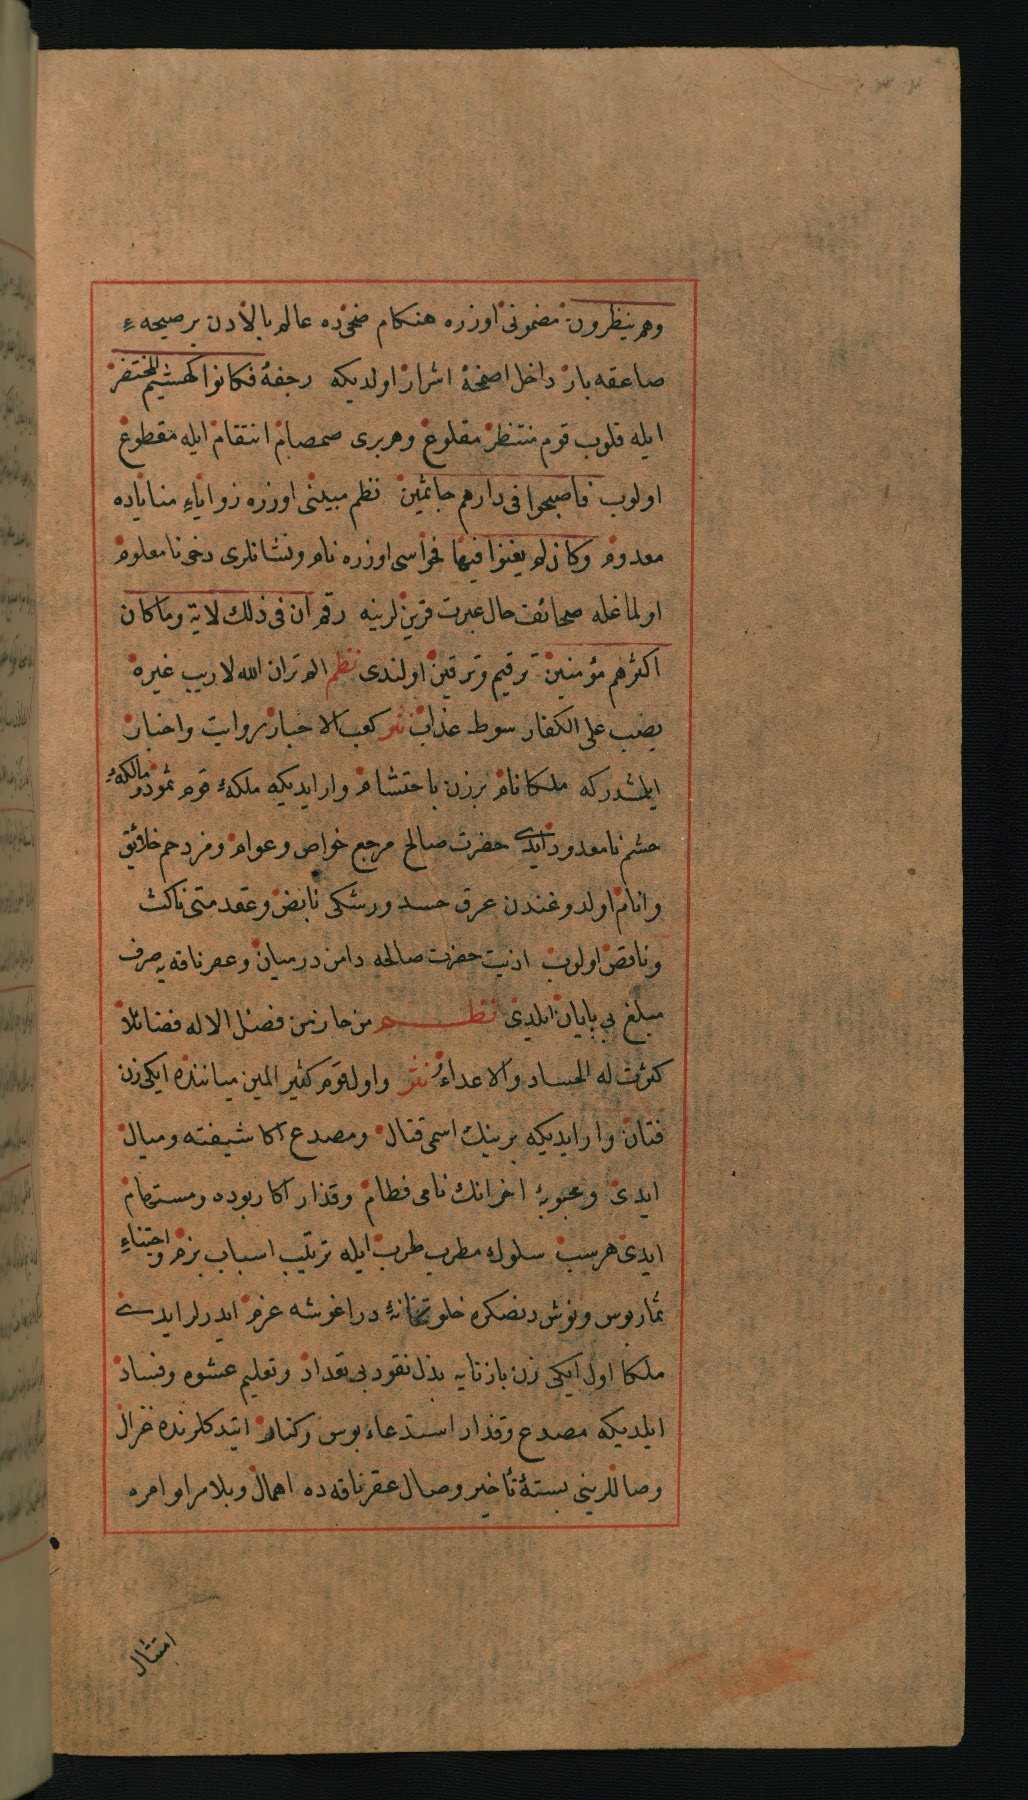 وهم ينظرون مضمونى اوزره هنكام ضحىده عالم بالادن بر صيحهء
صاعقه بار داخل اصمخهٔ اشرار اولديكه رجفهٔ فكانوا كهشيم المحتظر
ايله قلوب قوم منتظر مقلوع وهربرى صمصام انتقام ايله مقطوع
اولوب فاصبحوا فى دارهم جاثمين نظم مبينى اوزره زواياء مناياده
معدوم وكان لم يغنوا فيها فحواسى اوزره نام ونشانلرى دخى نامعلوم
اولماغله صحائف حال عبرت قرينلرينه رقم ان فى ذلك لاية وماكان
اكثرهم مؤمنين ترقيم وترقين اولندى نظم الم تر ان الله لا ريب غيره
يصب على الكفار سوط عذاب نثر كعب الاحبار روايت واخبار
ايلمشدركه ملكا نام بر زن با احتشام وار ايديكه ملكهٔ قوم ثمود ومالكهٔ
حشم نامعدود ايدى حضرت صالح مرجع خواص وعوام ومزدحم خلائق
وانام اولدوغندن عرق حسد ورشكى نابض وعقد متى ناكث
وناقض اولوب اذيت حضرت صالحه دامن درميان وعقر ناقه يه صرف
مبلغ بى پايان ايلدى نظم من حاز من فضل الاله فضائلا
كثرت له الحساد والاعداء نثر واول قوم كثير المين مياننده ايكى زن
فتان وار ايديكه برينك اسمى قتال ومصدع اكا شيفته وميال
ايدى ومحبوبهٔ اخرانك نامى قطام وقذار اكا ربوده ومستهام
ايدى هرشب سلوك مطرب طرب ايله ترتيب اسباب بزم واجتناء
ثمار بوس ونوش دنصكره خلوتخانهٔ دراغوشه عزم ايدرلر ايدى
ملكا اول ايكى زن بازنايه بذل نقود بى تعداد وتعليم عشوه وفساد
ايلديكه مصدع وقذار استدعاء بوس وكنار ايتدكلرنده غزال
وصاللرينى بستهٔ تأخير وصال عقر ناقه ده اهمال وبلا مر او امره
امتثال